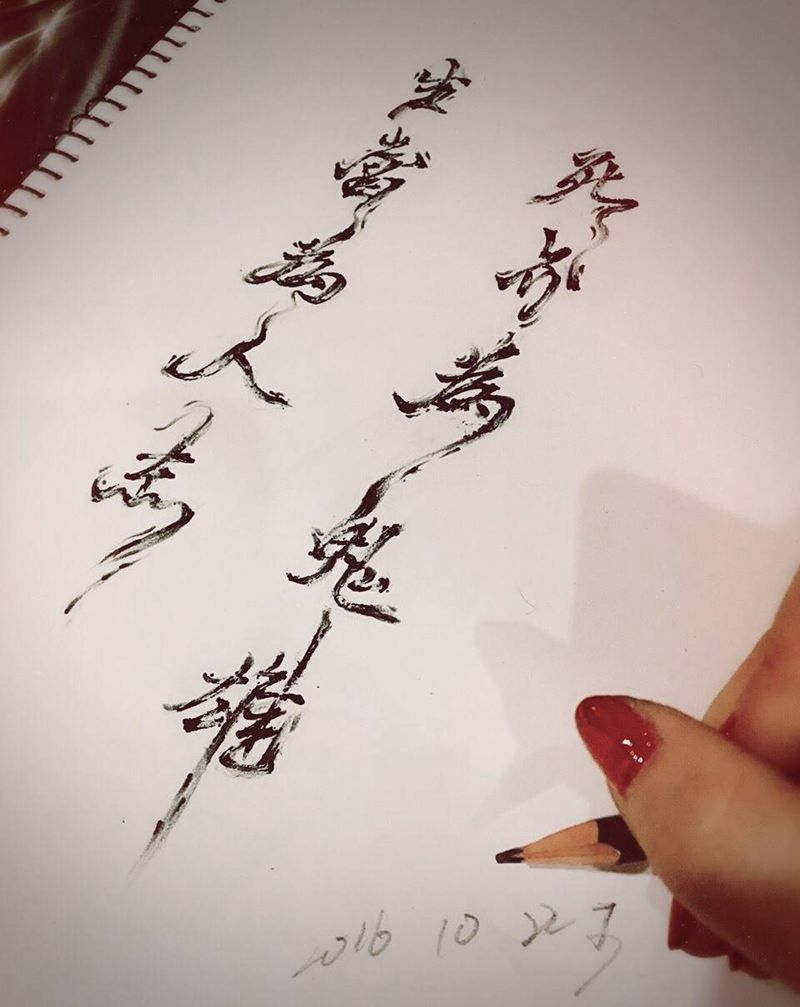 生當為人杰
死亦為鬼雄
2016 10 22